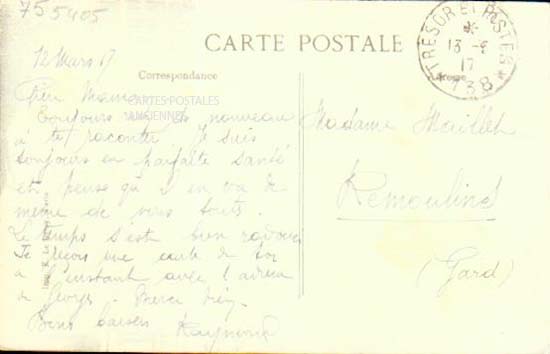 755405
CARTE POSTALE
Correspondance
Adresse
TRESOR ET POSTES
13 - 
17
* 138 *
12 Mars 17
Chère Maman
CARTES POSTALES
ANCIENNES
Toujours de nouveau
à te raconter. Je suis
toujours en parfaite santé
et pense qu'il en va de
même de vous touts.
Le temps s'est bien radouci
Je reçois une carte de toi
à l'instant avec l'adresse
de Georges. Merci bien.
Bons baisers Raymond
Madame Maillet
Remoulins
(Gard)